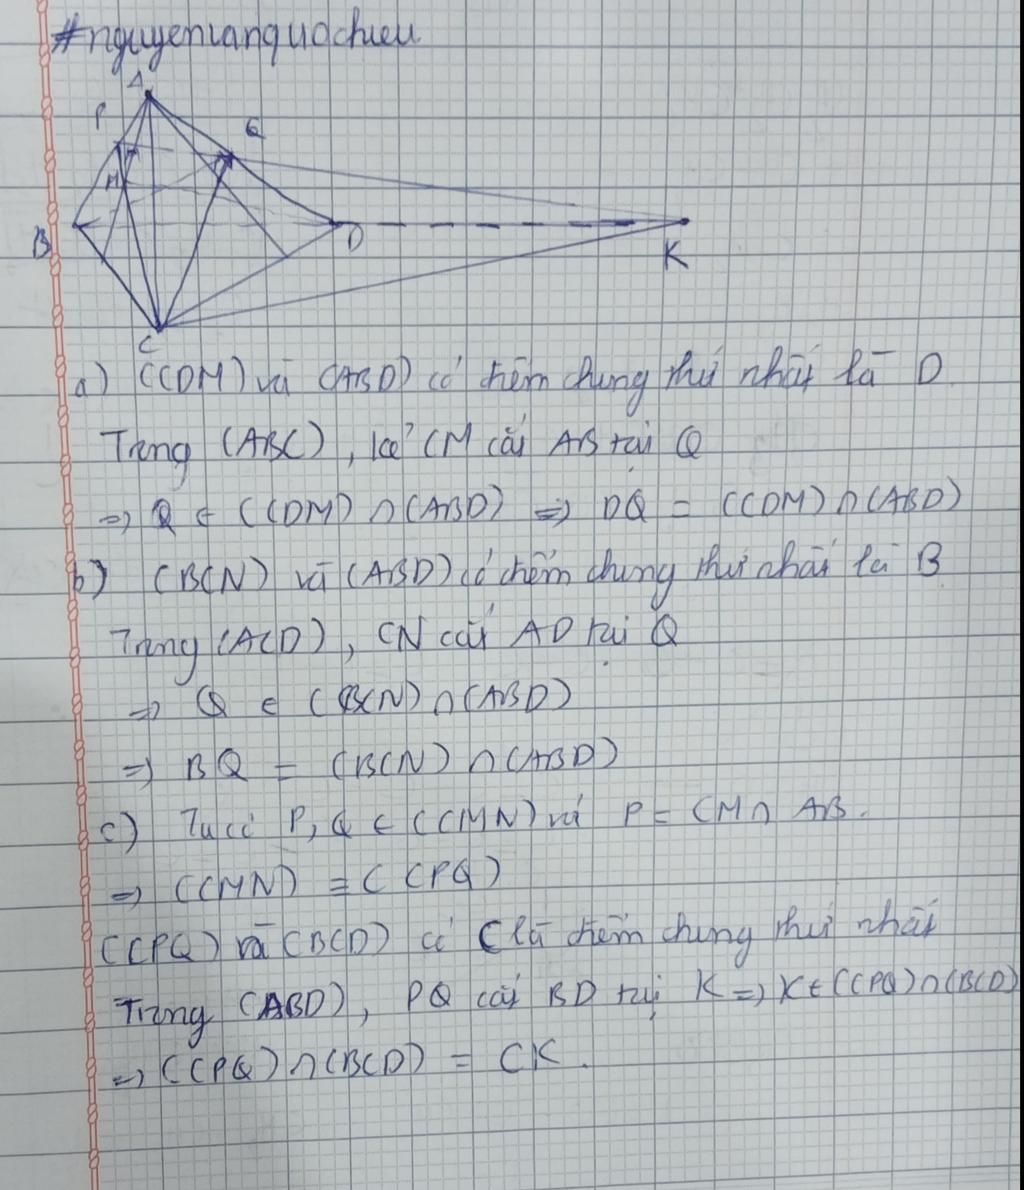 #nguyenlanquochieu
A
P
Q
M
B
D
K
C
a) (CDM) và (ABD) có điểm chung thứ nhất là D
Trong (ABC), kẻ CM cắt AB tại Q
=> Q ∈ (CDM) ∩ (ABD) => DQ = (CDM) ∩ (ABD)
b) (BCN) và (ABD) có điểm chung thứ nhất là B
Trong (ACD), CN cắt AD tại Q
=> Q ∈ (BCN) ∩ (ABD)
=> BQ = (BCN) ∩ (ABD)
c) Ta có P, Q ∈ (CMN) và P = CM ∩ AB.
=> (CMN) ≡ (CPQ)
(CPQ) và (BCD) có C là điểm chung thứ nhất
Trong (ABD), PQ cắt BD tại K => K ∈ (CPQ) ∩ (BCD)
=> (CPQ) ∩ (BCD) = CK.